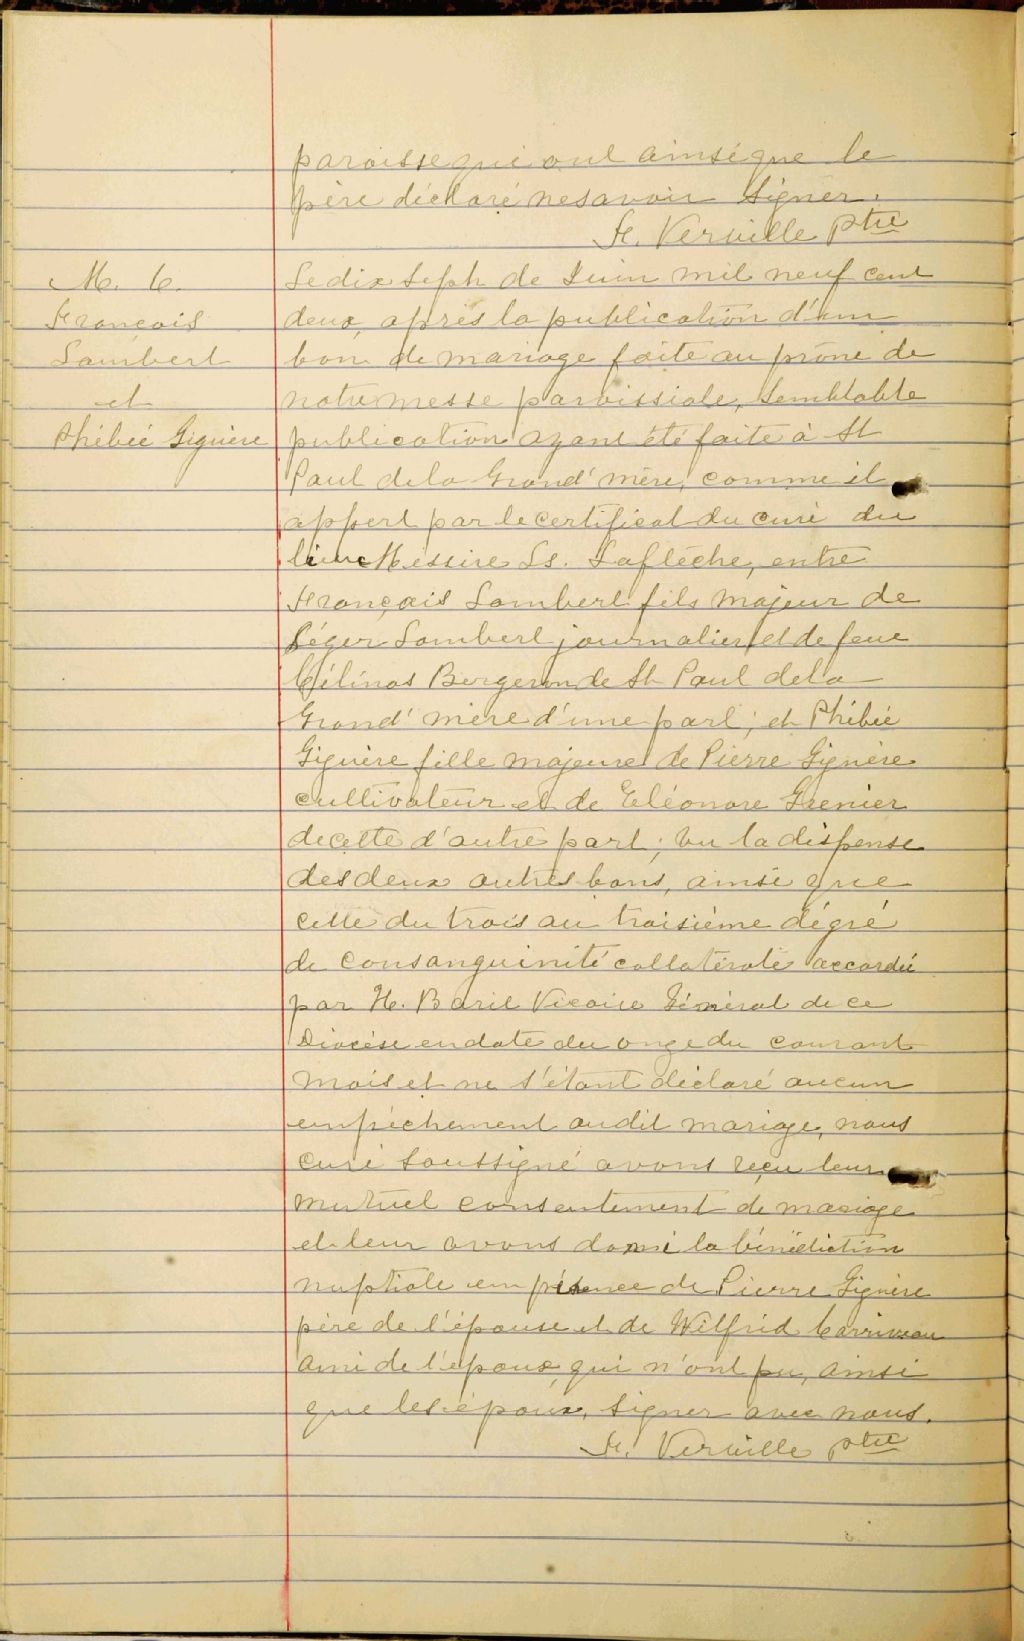 paroisse qui ont ainsi que le
père déclaré ne savoir signer.
H. Verville Ptre
M. 6.
François
Lambert
et
Phébée Giguère
Le dix Sept de Juin mil neuf cent
deux, après la publication d'un
ban de mariage faite au prône de
notre messe paroissiale, semblable
publication ayant été faite à St
Paul de la Grand' mère, comme il
appert par le certificat du curé du
lieu Messire Ls. Laflèche, entre
François Lambert fils majeur de
Léger Lambert journalier et de feue
Célinas Bergeron de St Paul de la
Grand' mère d'une part; et Phébée
Giguère fille majeure de Pierre Giguère
cultivateur et de Eléonore Grenier
de cette d'autre part; vu la dispense
des deux autres bans, ainsi que
celle du trois au troisième dégré
de consanguinité collatérale accordée
par H. Baril Vicaire Général de ce
Diocèse en date du onze du courant
mois et ne s'étant déclaré aucun
empêchement au dit mariage, nous
curé soussigné avons reçu leur
mutuel consentement de mariage
et leur avons donné la bénédiction
nuptiale en présence de Pierre Giguère
père de l'épouse et de Wilfrid Carriveau
ami de l'époux, qui n'ont pu, ainsi
que les époux, signer avec nous.
H. Verville Ptre